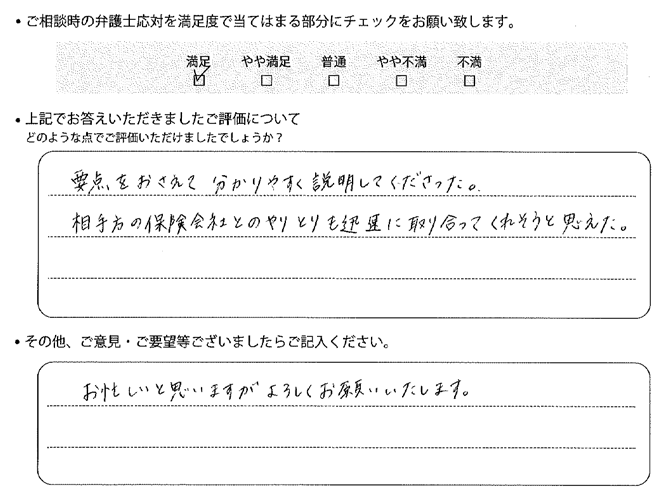 • ご相談時の弁護士応対を満足度で当てはまる部分にチェックをお願い致します。
満足 やや満足 普通 やや不満 不満
• 上記でお答えいただきましたご評価について
どのような点でご評価いただけましたでしょうか？
要点をおさえて 分かりやすく説明してくださった。
相手方の保険会社とのやりとりも迅速に取り合ってくれそうと思えた。
• その他、ご意見・ご要望等ございましたらご記入ください。
お忙しいと思いますがよろしくお願いいたします。